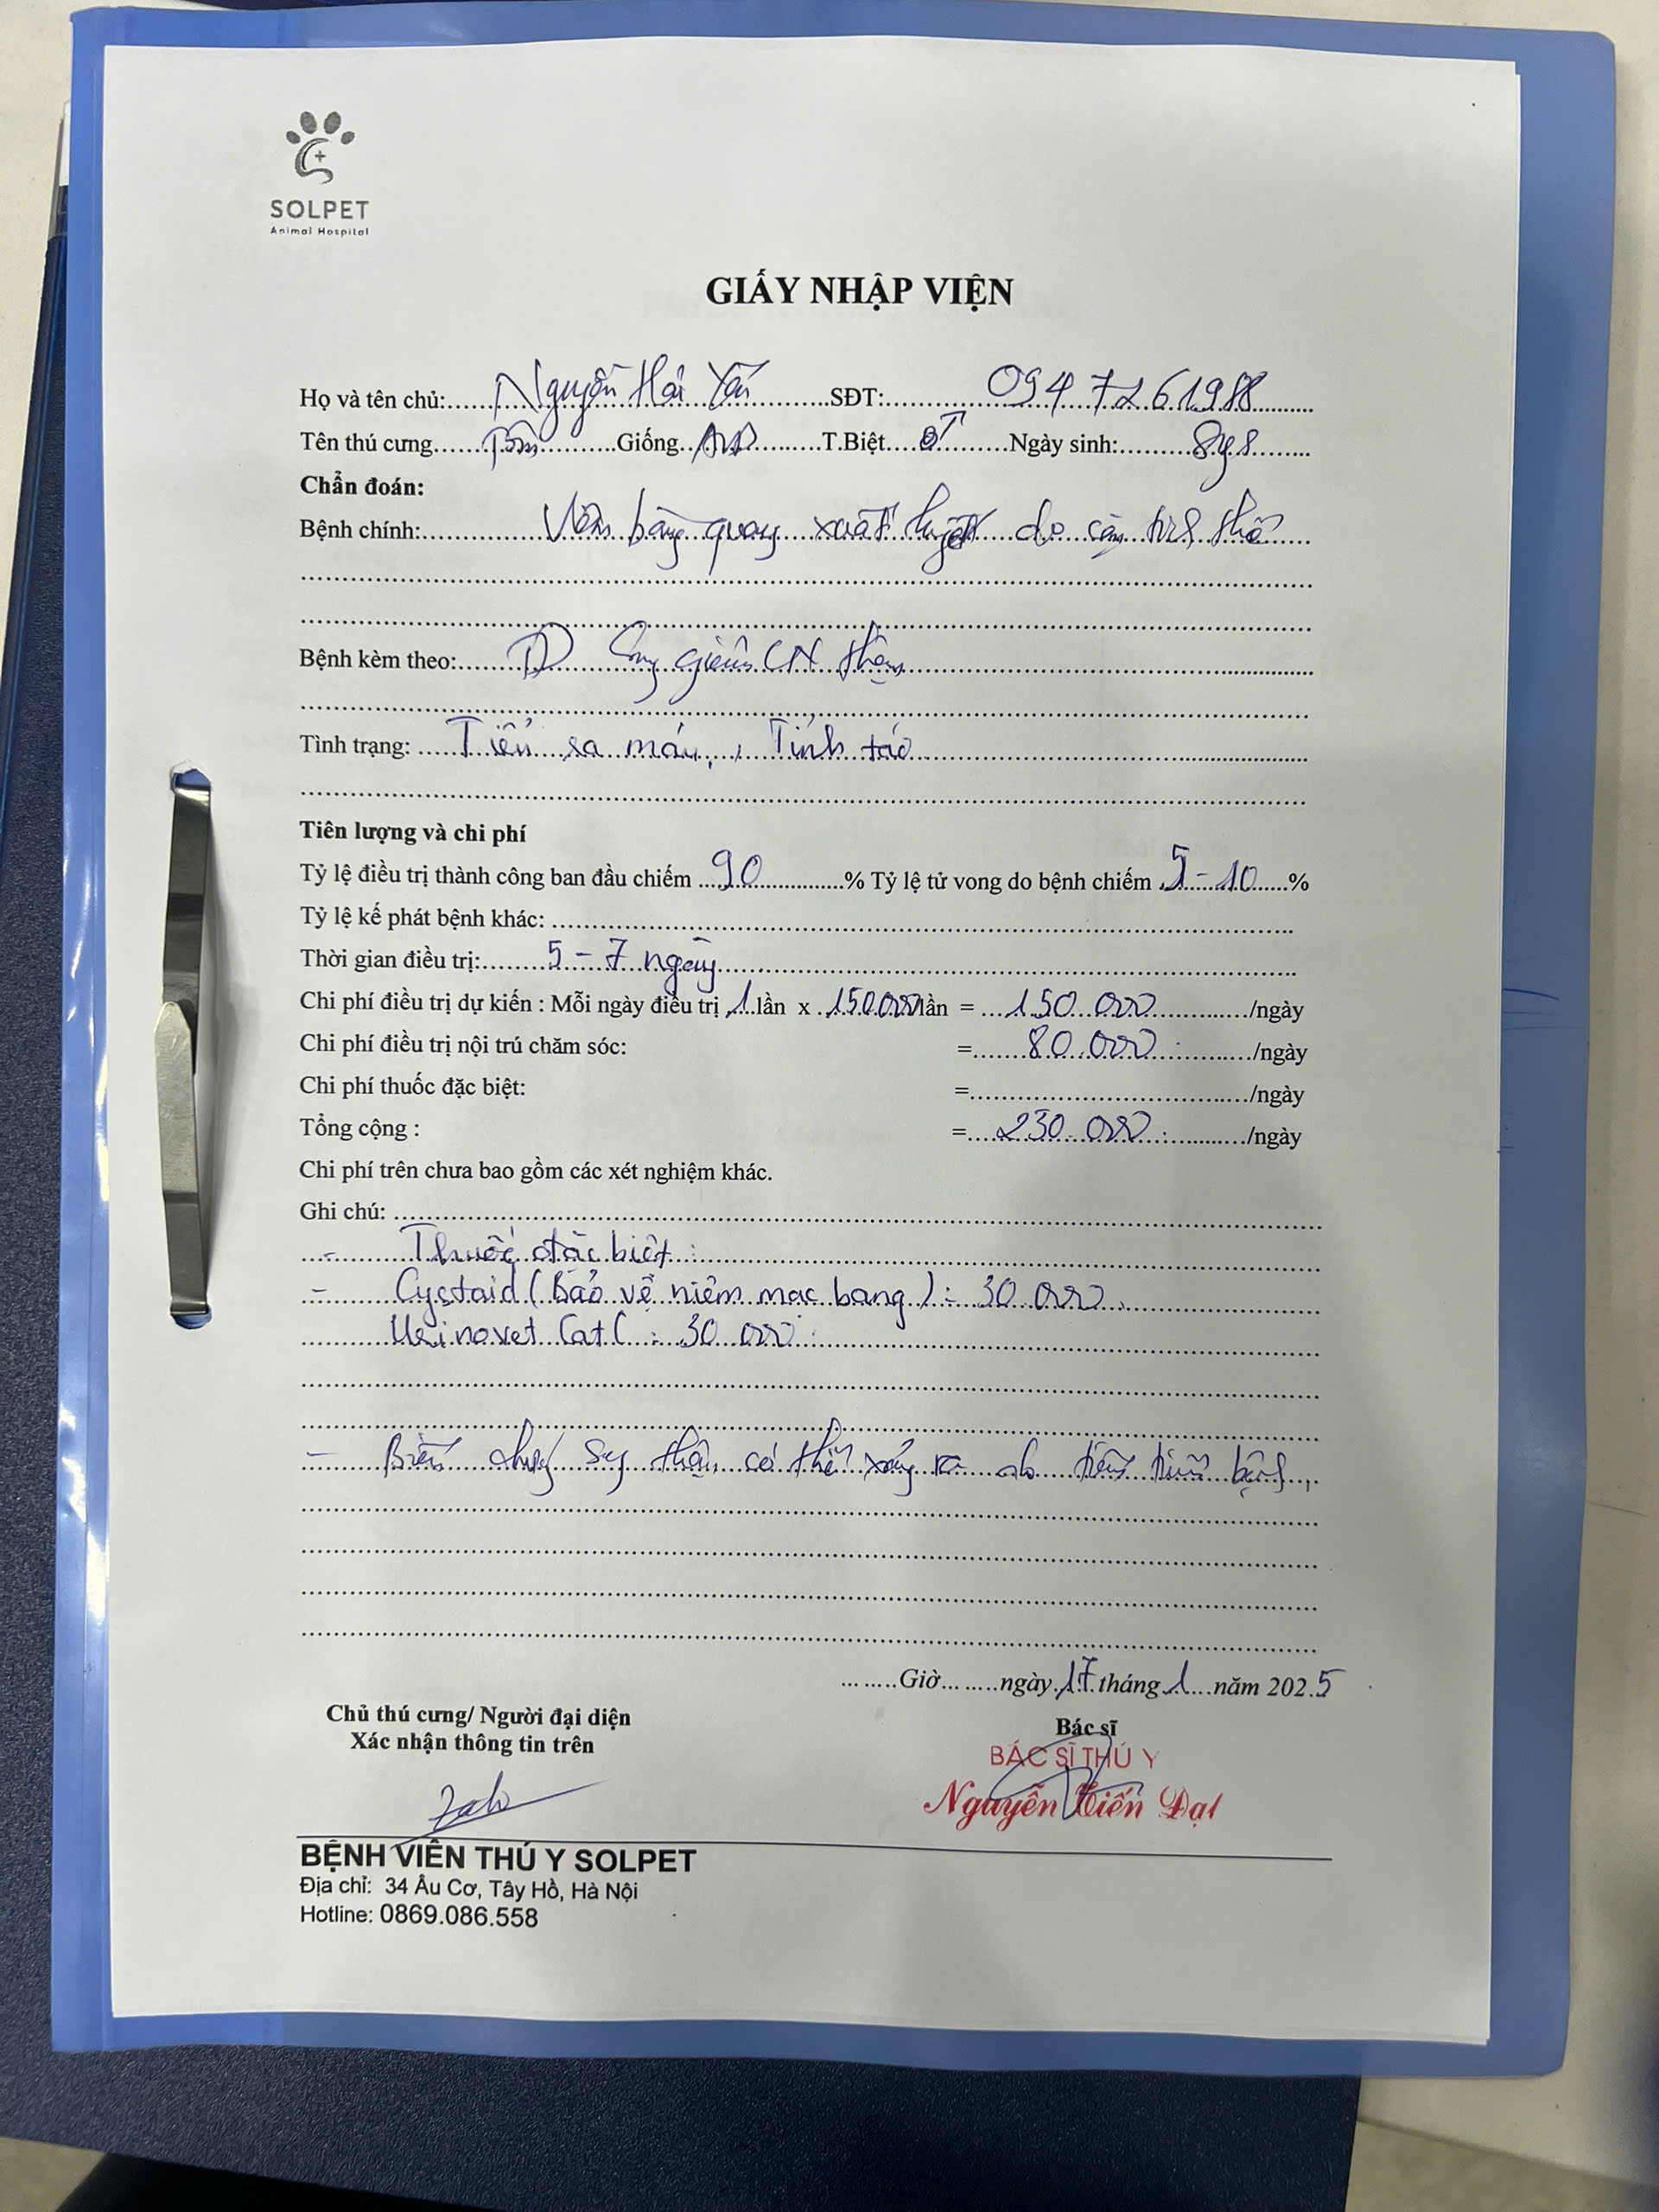 SOLPET
Animal Hospital
GIẤY NHẬP VIỆN
Họ và tên chủ: Nguyễn Hải Yến SĐT: 0947261988
Tên thú cưng Giống T.Biệt ♂ Ngày sinh: 8
Chẩn đoán:
Bệnh chính: Viêm bàng quang xuất huyết do tinh thể
Bệnh kèm theo: Suy giảm CN thận
Tình trạng: Tiểu ra máu, Tỉnh táo
Tiên lượng và chi phí
Tỷ lệ điều trị thành công ban đầu chiếm 90% Tỷ lệ tử vong do bệnh chiếm 5-10%
Tỷ lệ kế phát bệnh khác:
Thời gian điều trị: 5-7 ngày
Chi phí điều trị dự kiến : Mỗi ngày điều trị 1 lần x 150.000/lần = 150.000/ngày
Chi phí điều trị nội trú chăm sóc: = 80.000/ngày
Chi phí thuốc đặc biệt: = /ngày
Tổng cộng : = 230.000/ngày
Chi phí trên chưa bao gồm các xét nghiệm khác.
Ghi chú:
- Thuốc đặc biệt:
- Cystaid (Bảo vệ niêm mạc bang): 30.000
Urinovet Cat : 30.000
- Biến chứng suy thận có thể xảy ra do tiến triển bệnh.
Giờ ngày 17 tháng 1 năm 2025
Chủ thú cưng/ Người đại diện
Xác nhận thông tin trên
Bác sĩ
BÁC SĨ THÚ Y
Nguyễn Tiến Đạt
BỆNH VIỆN THÚ Y SOLPET
Địa chỉ: 34 Âu Cơ, Tây Hồ, Hà Nội
Hotline: 0869.086.558